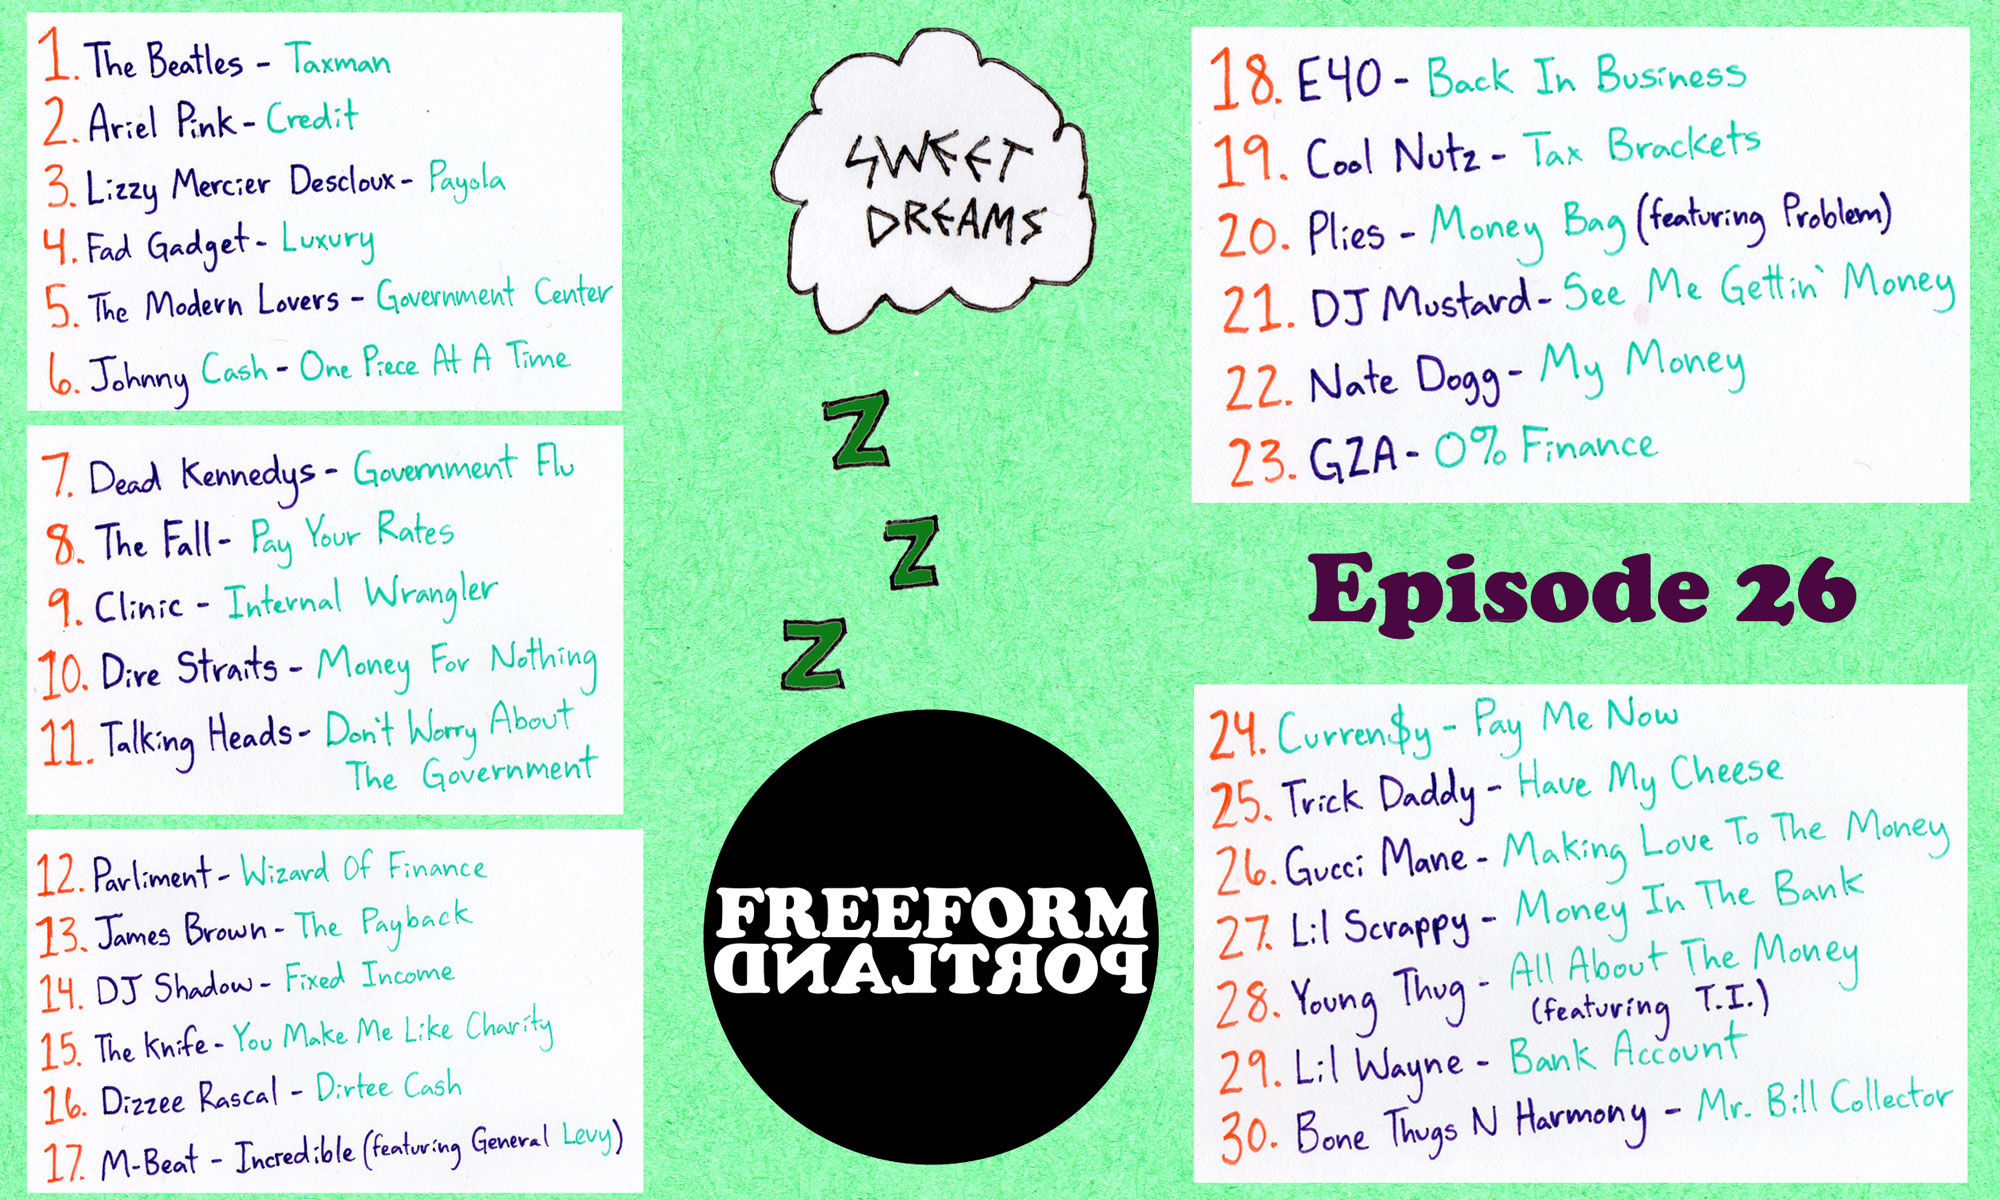 1. The Beatles - Taxman
2. Ariel Pink - Credit
3. Lizzy Mercier Descloux - Payola
4. Fad Gadget - Luxury
5. The Modern Lovers - Government Center
6. Johnny Cash - One Piece At A Time
7. Dead Kennedys - Government Flu
8. The Fall - Pay Your Rates
9. Clinic - Internal Wrangler
10. Dire Straits - Money For Nothing
11. Talking Heads - Don't Worry About
The Government
12. Parliment - Wizard Of Finance
13. James Brown - The Payback
14. DJ Shadow - Fixed Income
15. The Knife - You Make Me Like Charity
16. Dizzee Rascal - Dirtee Cash
17. M-Beat - Incredible (featuring General Levy)
SWEET
DREAMS
Z
Z
Z
FREEFORM
PORTLAND
18. E40 - Back In Business
19. Cool Nutz - Tax Brackets
20. Plies - Money Bag (featuring Problem)
21. DJ Mustard - See Me Gettin' Money
22. Nate Dogg - My Money
23. GZA - 0% Finance
Episode 26
24. Curren$y - Pay Me Now
25. Trick Daddy - Have My Cheese
26. Gucci Mane - Making Love To The Money
27. Lil Scrappy - Money In The Bank
28. Young Thug - All About The Money
(featuring T.I.)
29. Lil Wayne - Bank Account
30. Bone Thugs N Harmony - Mr. Bill Collector